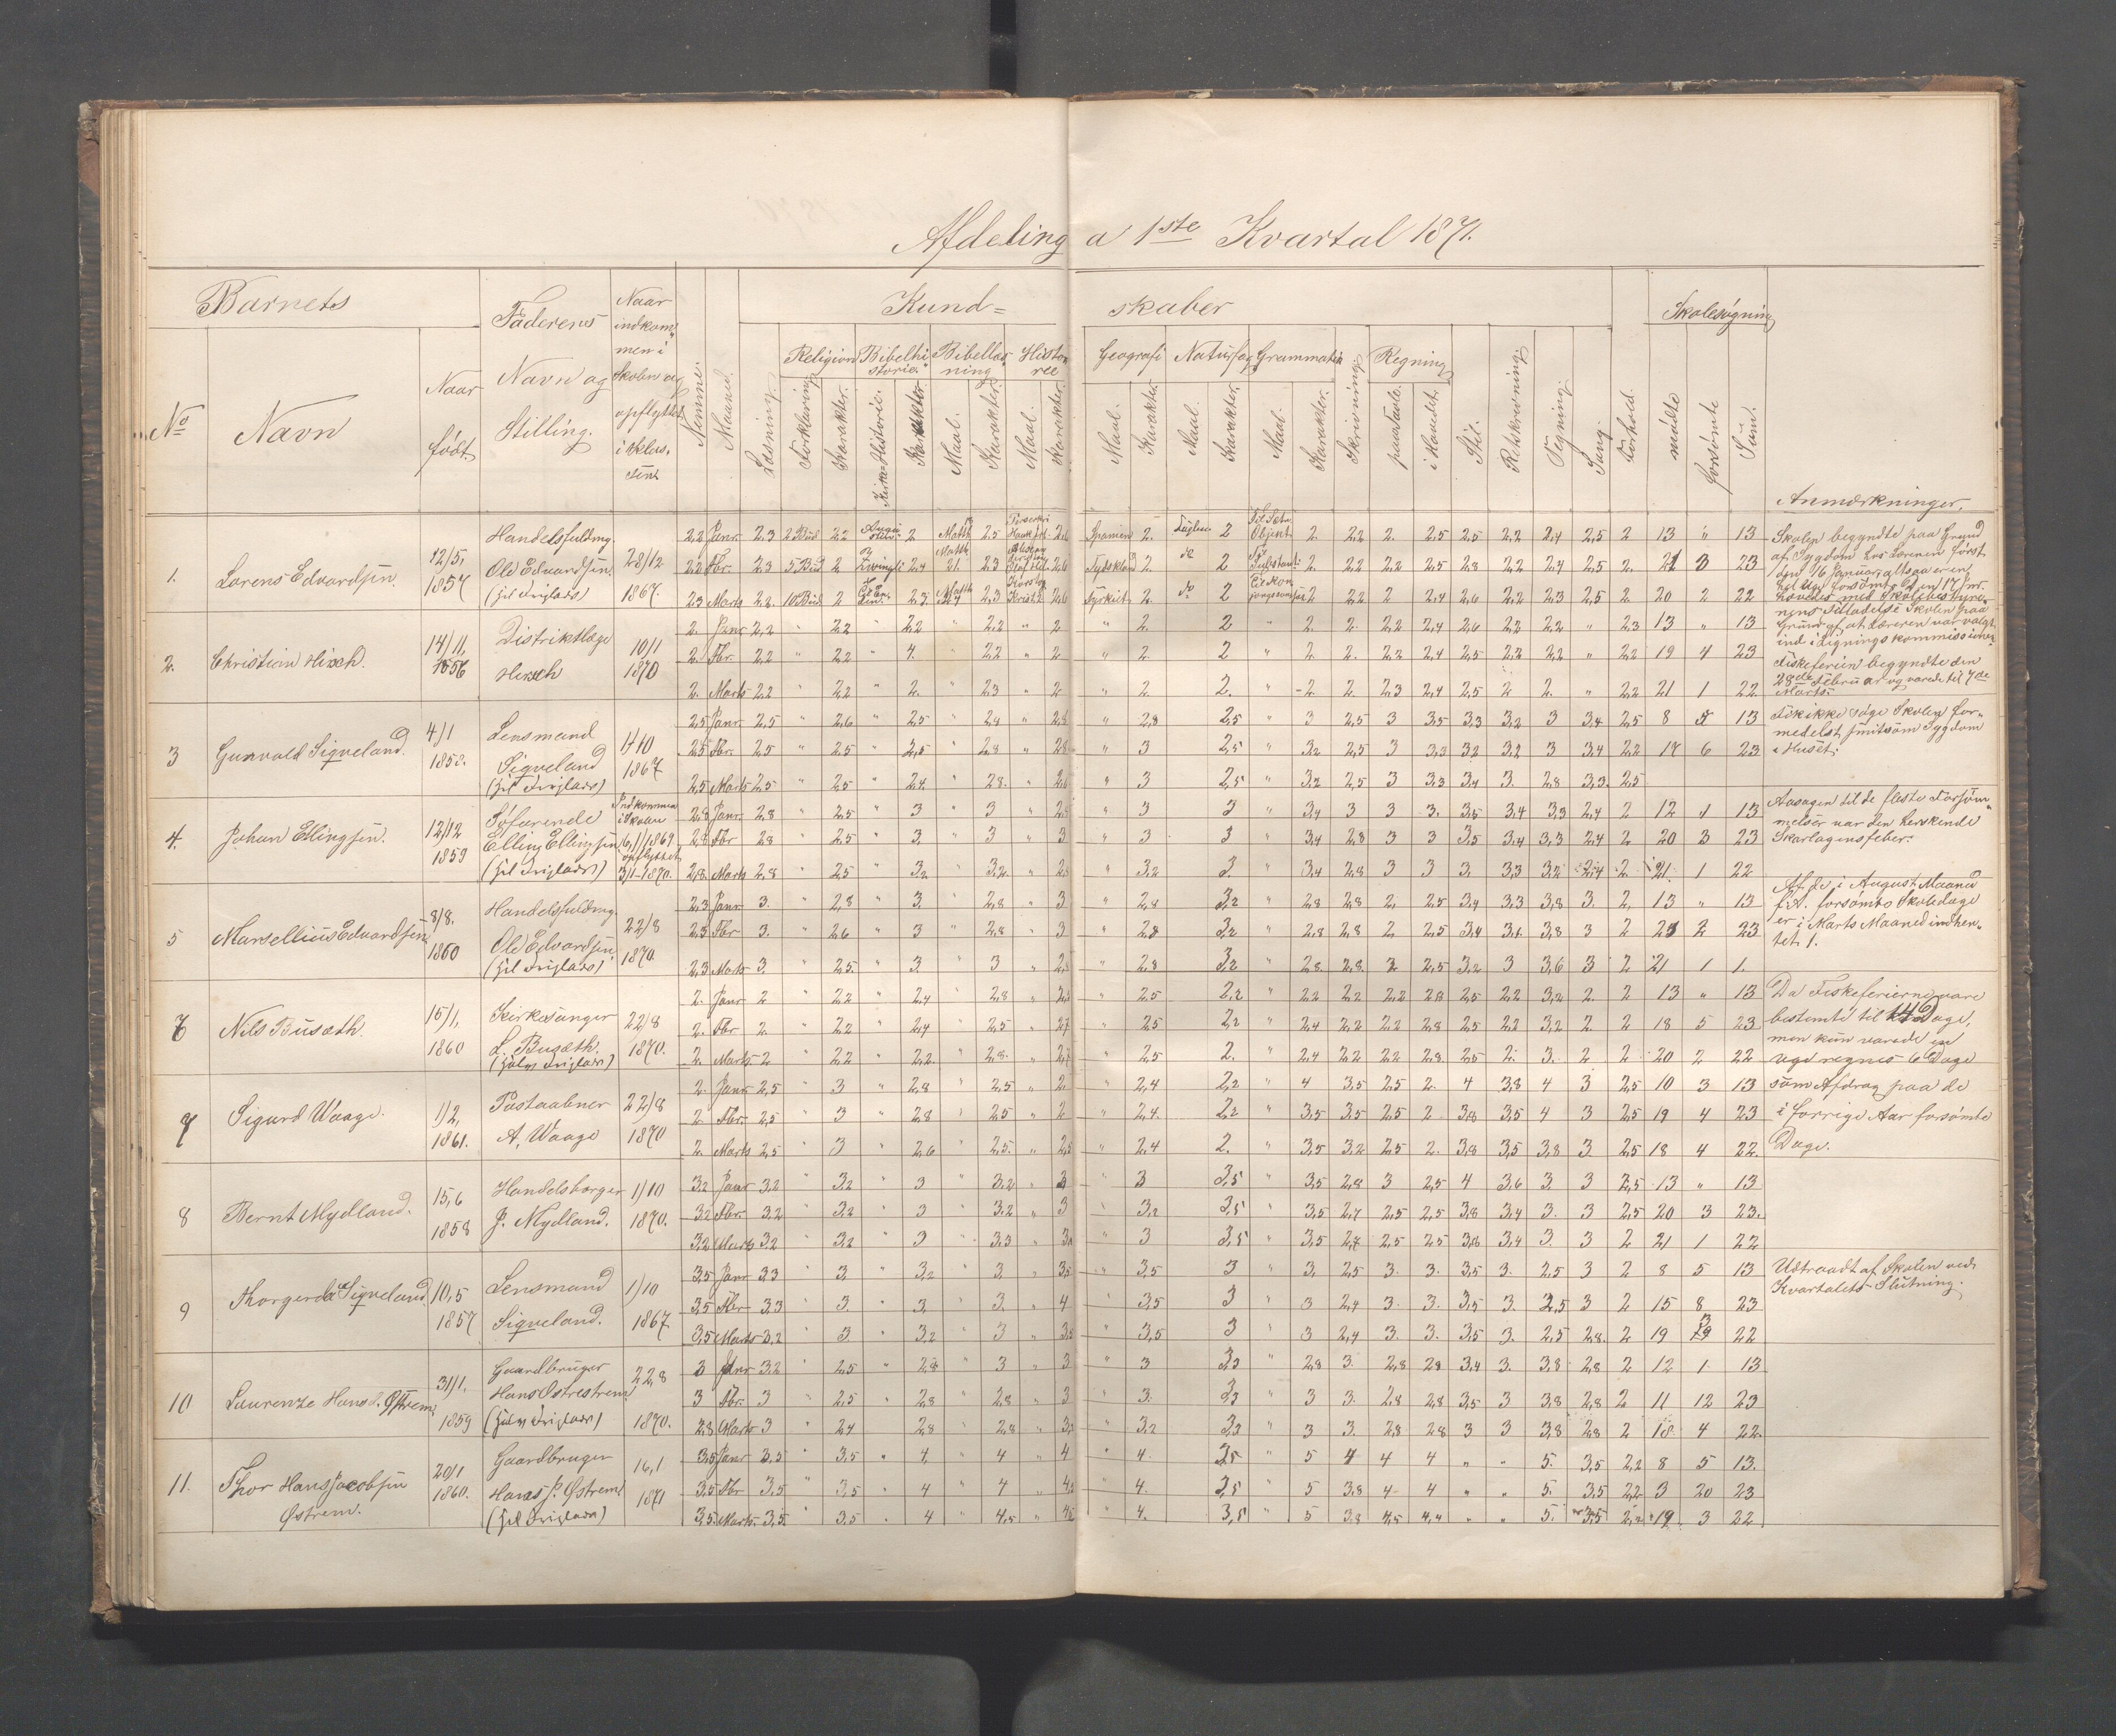 Afdeling a 1ste Kvartal 1871.
Barnets Faderens Naar indkommen i Skolen og opflyttet i Klassen Kundskaber Skolesøgning
No Navn Naar født. Navn og Stilling. Nemme. Maaned. Læsning. Religion Bibelhistorie. Bibellæsning Historie Geografi Naturfag Grammatik Skrivning. Regning Stil. Retskrivning Tegning Sang. Forhold. mødte forsømte Sum. Anmærkninger.
Forklaring. Karakter. Kirke-Historie. Karakter. Maal. Karakter. Maal. Karakter. Maal. Karakter. Maal. Karakter. Maal. Karakter. paa Tavle. i Hovedet.
1. Lorens Edvardsen. 12/5, 1857 Handelsfuldmg. Ole Edvardsen. 28/12 1867.
2,2 Janr. 2,3 2 Bud 2,2 2 Matth 2,5 2,6 Spanien 2. Fuglene 2 Objekt. 2. 2,2 2. 2,5 2,5 2,2 2,4 2,5 2 13 " 13
2,2 Fbr. 2,3 5 Bud 2 Zwingli 2,4 Matth 21. 2,3 2,6 Tydskland 2. do 2 2. 2,2 2,2 2,5 2,8 2,2 2,4 2,5 2. 21 2 23
2,3 Marts 2,2. 10 Bud 2 2,3. Matth 2,3 2,6 Tyrkiet 2. do 2 2 2,2 2 2,4 2,6 2,2 2,3 2,5 2. 20 2 22
2. Christian Hirsch. 14/11, 1856 Distriktlæge Hirsch 10/1 1870
2. Janr 2,2 " 2,2 " 2,2 " 2,2 " 2 " 2. 2 " 2 2. 2,2 2,4 2,6 2,2 2,2 " 2,3 13 " 13
2. Fbr. 2,2 " 2,2 " 4. " 2,2 " 2 " 2. 2 " 2. 2. 2,2 2,4 2,5 2,2 2,2 " 2,2 19 4 23
2. Marts 2,2 " 2,2 " 2. " 2,3 " 2 " 2. 2. " 2. 2. 2,3 2,4 2,5 2 2. " 2,2 21 1 22
3 Gunvald Siqveland. 4/1 1858. Lensmand Siqveland 1/10 1867
2,5 Janr. 2,5 " 2,6 " 2,5 " 2,9 " 2,8 " 2,8 2,5 " 3 2,5 3 3,5 3,3 3,2 3 3,4 2,5 8 5 13
2,5 Fbr. 2,5 " 2,5 " 2,5 " 2,8 " 2,8 " 3 2,5 " 3,2 2,5 3 3,3 3,2 3,2 3 3,4 2,2 17 6 23
2,5 Marts 2,5 " 2,5 " 2,4. " 2,8. " 2,6 " 3 2,5 " 3,2 2,5 3 3,3 3,4 3. 2,8 3,3. 2,5
4. Johan Ellingsen. 12/12 1859 Søfarende Elling Ellingsen Indkommen i Skolen 6/1 1869 opflyttet 3/1-1870.
2,8 Janr. 2,8 " 2,5 " 3 " 3 " 2,8 " 3 3 " 3,4 3 3 3. 3,5 3,4 3,3 2,4 2 12 1 13
2,8 Fbr 2,8 " 2,5 " 3. " 3 " 3 " 3 3 " 3,4 2,8 3 3 3,5 3,4 3,3 2,4 2 20 3 23
2,8. Marts 2,8 " 2,5 " 3,2 " 3,2. " " 3,2 3. " 3,4 2,8 3 3 3. 3,3 3,2 2,4 2. 21. 1 22
5 Marsellius Edvardsen 8/8. 1860 Handelsfuldmg. Ole Edvardsen. 22/8 1870.
2,3 Janr. 3. " 2,8 " 3. " 2,8 " 3 " 2,8 3,2 " 2,8 2,8 2. 2,5 3,4 3,3 3,8 3. 2. 13 " 13
2,3 Fbr 3. " 2,6 " 3 " 2,8 " 3 " 2,8 3,2 " 2,8 2,8 2 2,5 3,4 3,1 3,8 3 2 21 2 23
2,3 Marts 3. " 2,5. " 3. " 3 " " 2,8 3,2 " 2,8 2,8. 2 2,5 3,2 3 3,6 3 2 21 1 1.
6 Nils Busæth. 15/1, 1860 Kirkesanger L. Busæth. 22/8 1870.
2. Janr 2 " 2,2 " 2,4 " 2,8 " " 2,5 2,2 " 2,2 2,2 2,2 2,8 2,5 2,2 3,2 2. 2 13 " 13
2. Fbr 2. " 2,2 " 2,4 " 2,5 " 2,7 " 2,5 2,2 " 2,4 2,2 2,2 2,8 2,5 2,2 3,2 2. 2 18 5 23.
2. Marts 2 " 2,2 " 2,2. " 2,8. " " 2,5 2. " 2,4 2,2 2,2 2,8. 2,5 2. 3. 2 2. 20 2 22
7 Sigurd Waage. 1/2, 1861. Postaabner A. Waage 22/8 1870
2. Janr 2,5 " 3 " 2,8 " 2,5 " 2. " 2,4 2,2 " 4 3,5 2,5 2. 4 3,8 4 3 2,5 10 3 13
2. Fbr. 2,5 " 3 " 2,8 " 2,5 " 2 " 2,4. 2,2 " 3,5 3,5 2,5 2 3,8 3,5 4 3 2,5 19 4 23
2. Marts 2,5 " 3 " 2,6 " 2,5. " " 2,4 2. " 3,5 3,2 2,5 2. 3,8 3,5 3,8 3. 2,5 18 4 22.
8 Bernt Mydland. 15,6 1858 Handelsborger J. Mydland. 1/10 1870.
3,2 Janr 3,2 " 3,2 " 3 " 3,2 " 3 " 3 3,5 " 3,5 2,8 3 2,5 4 3,6 3. 3 2,5 13 " 13
3,2 Fbr. 3,2 " 3,2 " 3 " 3,2 " 3 " 3,2 3,5 " 3,5 2,7 2,5 2,5 3,8 3,4 3. 3 2,5 20 3 23.
3,2 Marts 3,2 " 3,2 " 3 " 3,3 " " 3 3,5 " 3,5 2,7 2,5 2,5 3,8 3,4 3. 3 2 21 1 22
9 Thorgerda Siqveland 10,5 1857 Lensmand Siqveland. 1/10 1867.
3,5 Janr 3,3 " 3. " 3,2 " 3. " 3,5 " 3,5 3 " 3. 2,5 3. 3. 3,5 3. 2,5 3 2 8 5 13
3,5 Fbr 3,3 " 3. " 3. " 3. " 4 " 3,5 3 " 3 2,4 3. 3. 3,5 3. 2,5 3 2 15 8 23
3,5 Marts 3,2 " 3 " 3,2 " 3 " 3,5 " 3,5 3 " 3 2,4 3. 3. 3,5 3. 2,5 2,8. 2 19 3 22
10 Laurenze Hansd. Østrem. 31/1, 1859 Gaardbruger Hans Østrem 22,8 1870.
3 Janr 3,2 " 2,5 " 2,8 " 3 " 3 " 3 3,3 " 2,8 3. 2,8 2,8 3,4 3. 3,8 2,8 2 12 1. 13
3 Fbr. 3 " 2,5 " 2,8 " 2,8 " 3 " 3. 3,3 " 3 3. 2,8 2,8 3,5 3 3,8 2,8 2 11 12 23
2,8 Marts 3 " 2,4 " 2,8 " 2,8 " " 3,2 3,3 " 3 3. 2,8 2,8 3 3 3,8 2,8 2 18 4 22.
11. Thor Hans Jacobsen Østrem. 20/1 1860. Gaardbruger Hans J. Østrem 16,1 1871
3,5 Janr 3,5 " 3,5 " 4. " 4 " 4 " 4. 3,5 " 5 4 4 4 " " 5. 3,5 2,2 8 5 13.
3,5 Fbr 3,5 " 3,5 " 4 " 4 " " 4. 3,5 " 5 3,8 4 4 " " 5. 3,5 2,2 3 20 23
3,5. Marts. 3,5. " 3,5 " 4 " 4,5 " " 4. 3,5 " 5 3,8 4,5 4,4 " " 5. 3,5 2,2 19 3 22
Skolen begyndte paa Grund
af Sygdom hos Læreren først
den 16 Januar, altsaa er en
hel Uge forsømt. Den 17 Fbr.
hævedes med Skolebestyre-
rens Tilladelse Skolen paa
Grund af at Læreren var valgt
ind i Ligningskommissionen
Fiskeferien begyndte den
28de Februar og varede til 7de
Marts.
Fik ikke søge Skolen for-
medelst smitsom Sygdom
i Huset.
Aasagen til de fleste Forsøm-
melser var den herskende
Skarlagensfeber.
Af de i August Maaned
f.A. forsømte Skoledage
er i Marts Maaned indhen-
tet 1.
Da Fiskeferierne vare
bestemte til 14 Dage,
men kun varede en
Uge regnes 6 Dage
som Afdrag paa de
i forrige Aar forsømte
Dage.
Udtraadt af Skolen ved
Kvartalets Slutning.